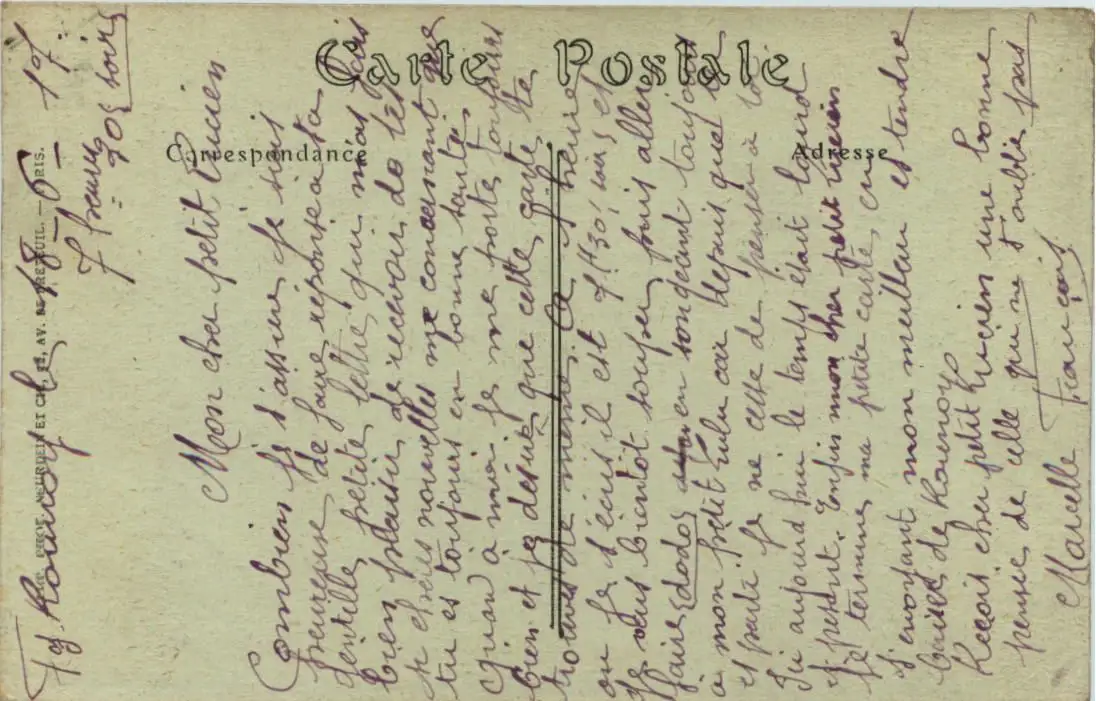 Carte Postale
Correspondance
Adresse
le 18-6-17.
7 heures
90s soir
Mon cher petit Lucien
Combien je t'assure je suis
heureuse de faire réponse à ta
gentille petite lettre qui m'as fais
bien plaisir de recevoir de tes
chères nouvelles me concernant que
tu es toujours en bonne santé
quand à moi je me porte toujours
bien et je désire que cette carte te
trouve de même
on je t'écris il est 9h30 soir et
je vais bientôt souper puis aller
faire dodo en songeant toujours
à mon petit Lulu car depuis que tu
es parti je ne cesse de penser à toi
Ici aujourd'hui le temps était lourd
à présent. Enfin mon cher petit Lucien
je termine ma petite carte en
t'envoyant mon meilleur et tendre
baiser de
Reçois cher petit Lucien une bonne
pensée de celle qui ne t'oublie pas
Marcelle François